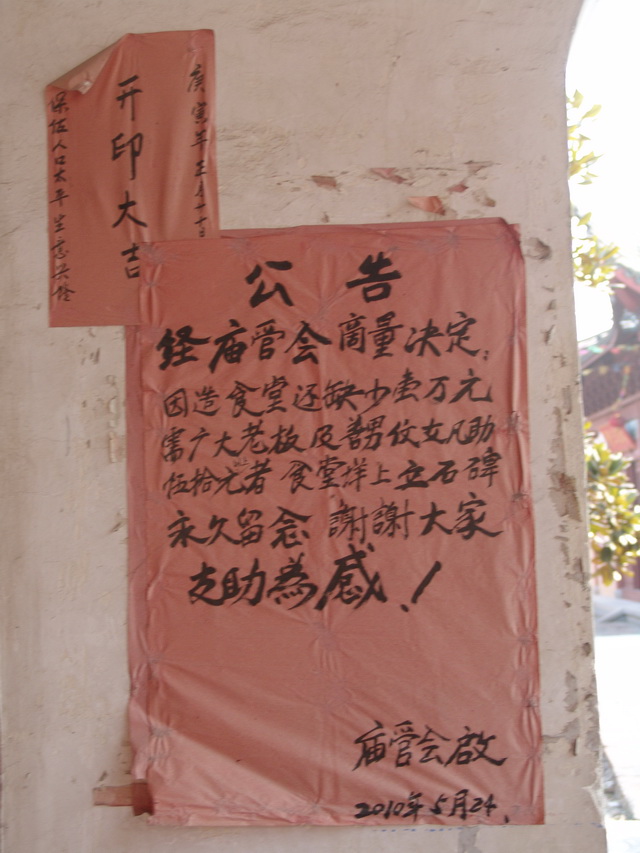 庚寅年正月二十日
开印大吉
保佑人口太平生意兴隆
公告
经庙管会商量决定:
因造食堂还缺少壹万元
需广大老板及善男伩女凡助
伍拾元者 食堂洋上立石碑
永久留念 謝謝大家
支助為感!
庙管会啟
2010年5月24.